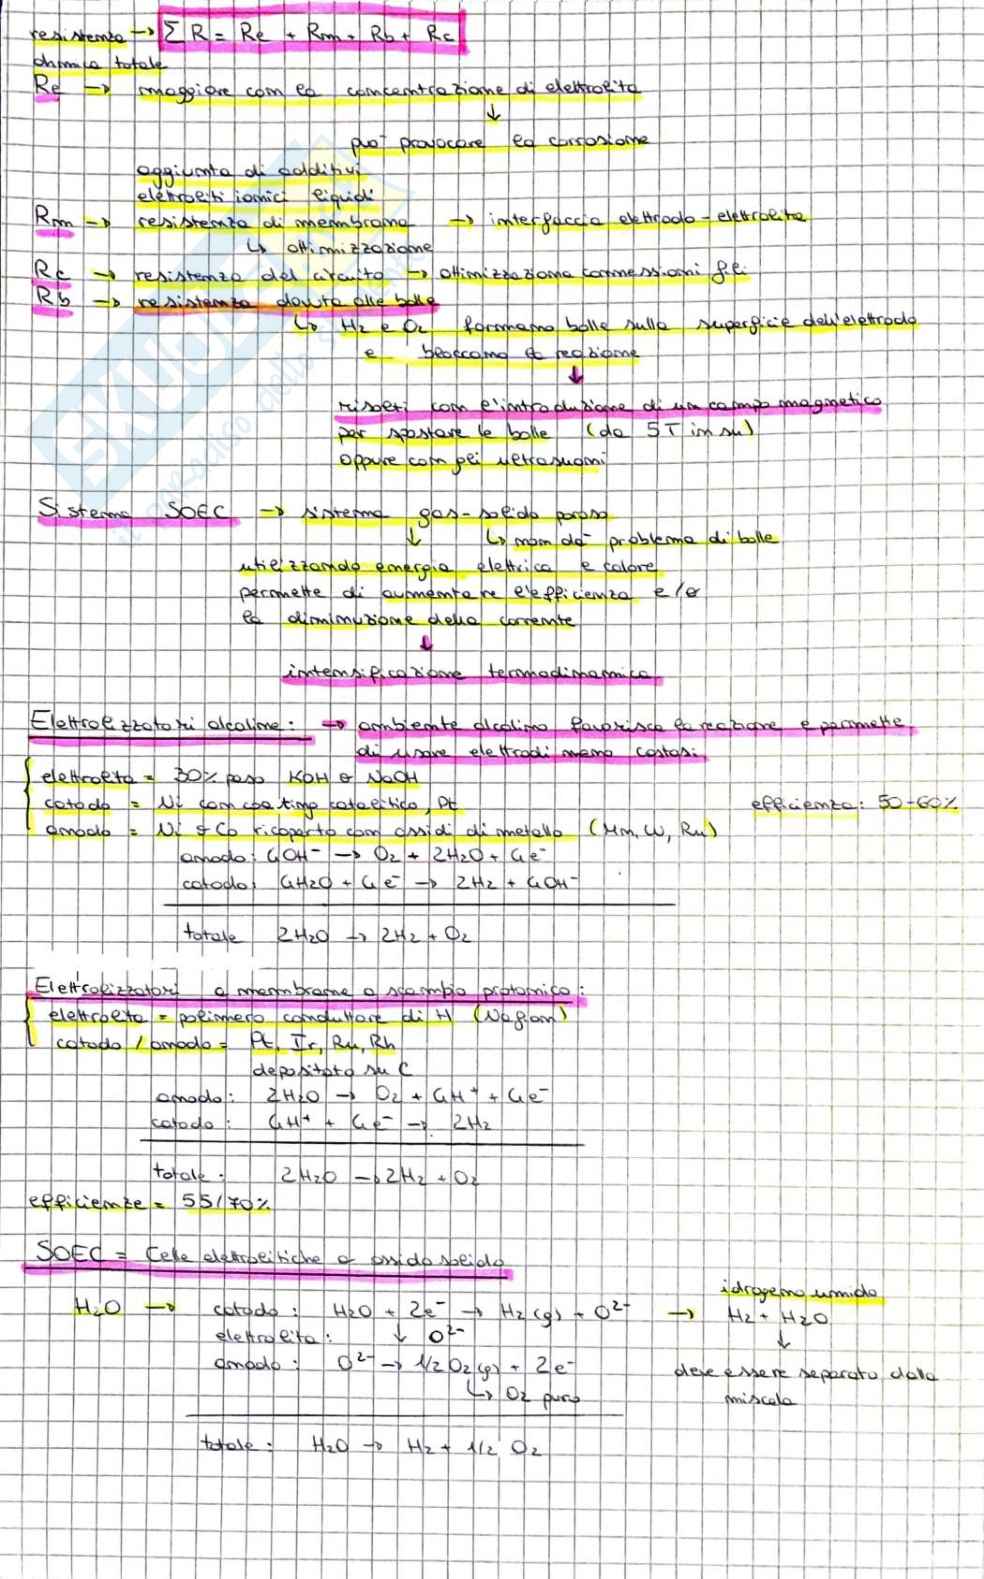 resistenza → ΣR = Re + Rm + Rb + Rc
ohmica totale
Re → maggiore con la concentrazione di elettrolita
↓
può provocare la corrosione
aggiunta di additivi
elettroliti ionici liquidi
Rm → resistenza di membrana → interfaccia elettrodo-elettrolita
↳ ottimizzazione
Rc → resistenza del circuito → ottimizzazione connessioni fili
Rb → resistenza dovuta alle bolle
↳ H2 e O2 formano bolle sulla superficie dell'elettrodo
e bloccano la reazione
↓
risolti con l'introduzione di un campo magnetico
per spostare le bolle (da 5T in su)
oppure con gli ultrasuoni
Sistema SOEC → sistema gas-solido poroso
↓ ↳ non dà problema di bolle
utilizzando energia elettrica e calore
permette di aumentare l'efficienza e/o
la diminuzione della corrente
↓
intensificazione termodinamica
Elettrolizzatori alcaline: → ambiente alcalino favorisce la reazione e permette
di usare elettrodi meno costosi
elettrolita = 30% peso KOH o NaOH
catodo = Ni con coating catalitico, Pt efficienza: 50-60%
anodo = Ni o Co ricoperto con ossidi di metallo (Mn, W, Ru)
anodo: 4OH⁻ → O2 + 2H2O + 4e⁻
catodo: 4H2O + 4e⁻ → 2H2 + 4OH⁻
totale 2H2O → 2H2 + O2
Elettrolizzatori a membrane a scambio protonico:
elettrolita = polimero conduttore di H (Nafion)
catodo / anodo = Pt, Ir, Ru, Rh
depositato su C
anodo: 2H2O → O2 + 4H⁺ + 4e⁻
catodo: 4H⁺ + 4e⁻ → 2H2
totale: 2H2O → 2H2 + O2
efficienze = 55/70%
SOEC = Celle elettrolitiche a ossido solido
idrogeno umido
H2O → catodo: H2O + 2e⁻ → H2(g) + O²⁻ → H2 + H2O
elettrolita: ↓ O²⁻ ↓
anodo: O²⁻ → 1/2O2(g) + 2e⁻ deve essere separato dalla
↳ O2 puro miscela
totale: H2O → H2 + 1/2 O2